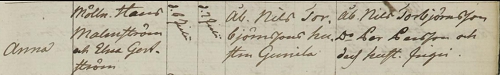 Anna
Mölln. Hans
Malmström
och Elna Gert-
ström
d. 6 Juli
d. 7 Juli
Åb. Nils Tor-
björnssons hu-
stru Gunila
Åb. Nils Torbjörnsson
Dr. Per Persson och
des hust. Ingri.